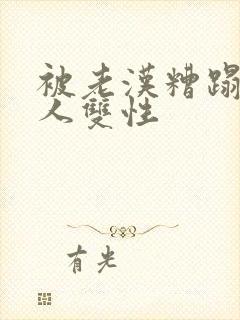 被老漢糟蹋
人雙性
有光